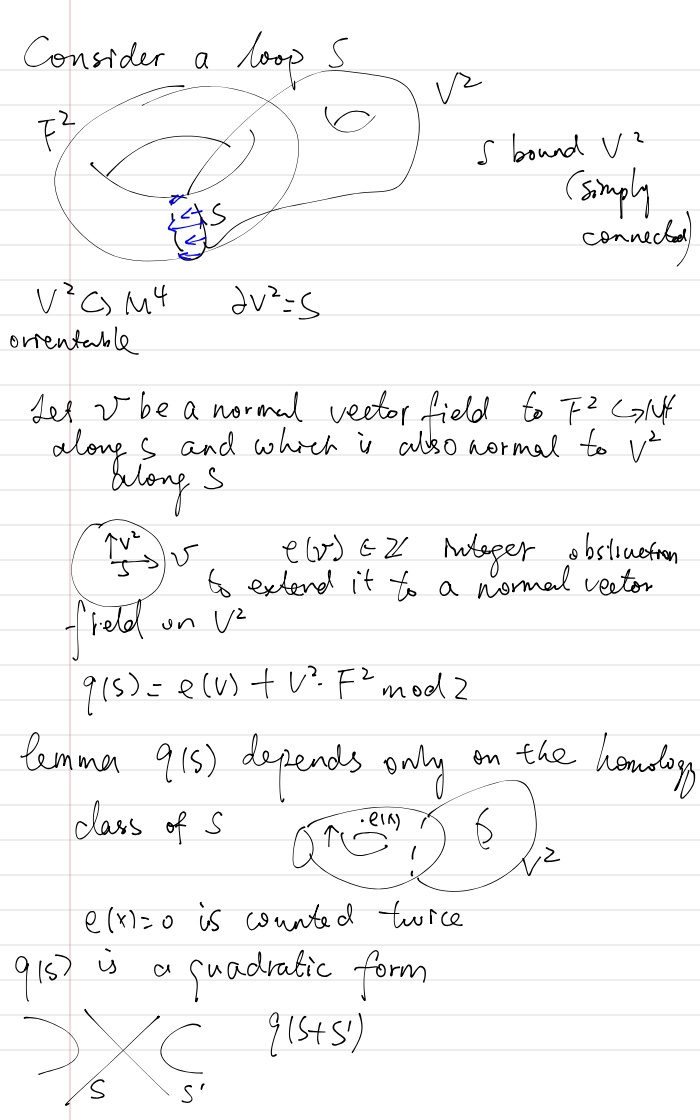 Consider a loop S
V²
F²
S bound V²
(simply
connected)
S
V² ↪ M⁴ ∂V² = S
orientable
Let v be a normal vector field to F² ↪ M⁴
along S and which is also normal to V²
along S
↑V²
S
v
e(v) ∈ ℤ integer obstruction
to extend it to a normal vector
field on V²
q(S) = e(v) + V² · F² mod 2
lemma q(S) depends only on the homology
class of S
V²
e(x)=0 is counted twice
q(S) is a quadratic form
q(S+S')
S S'